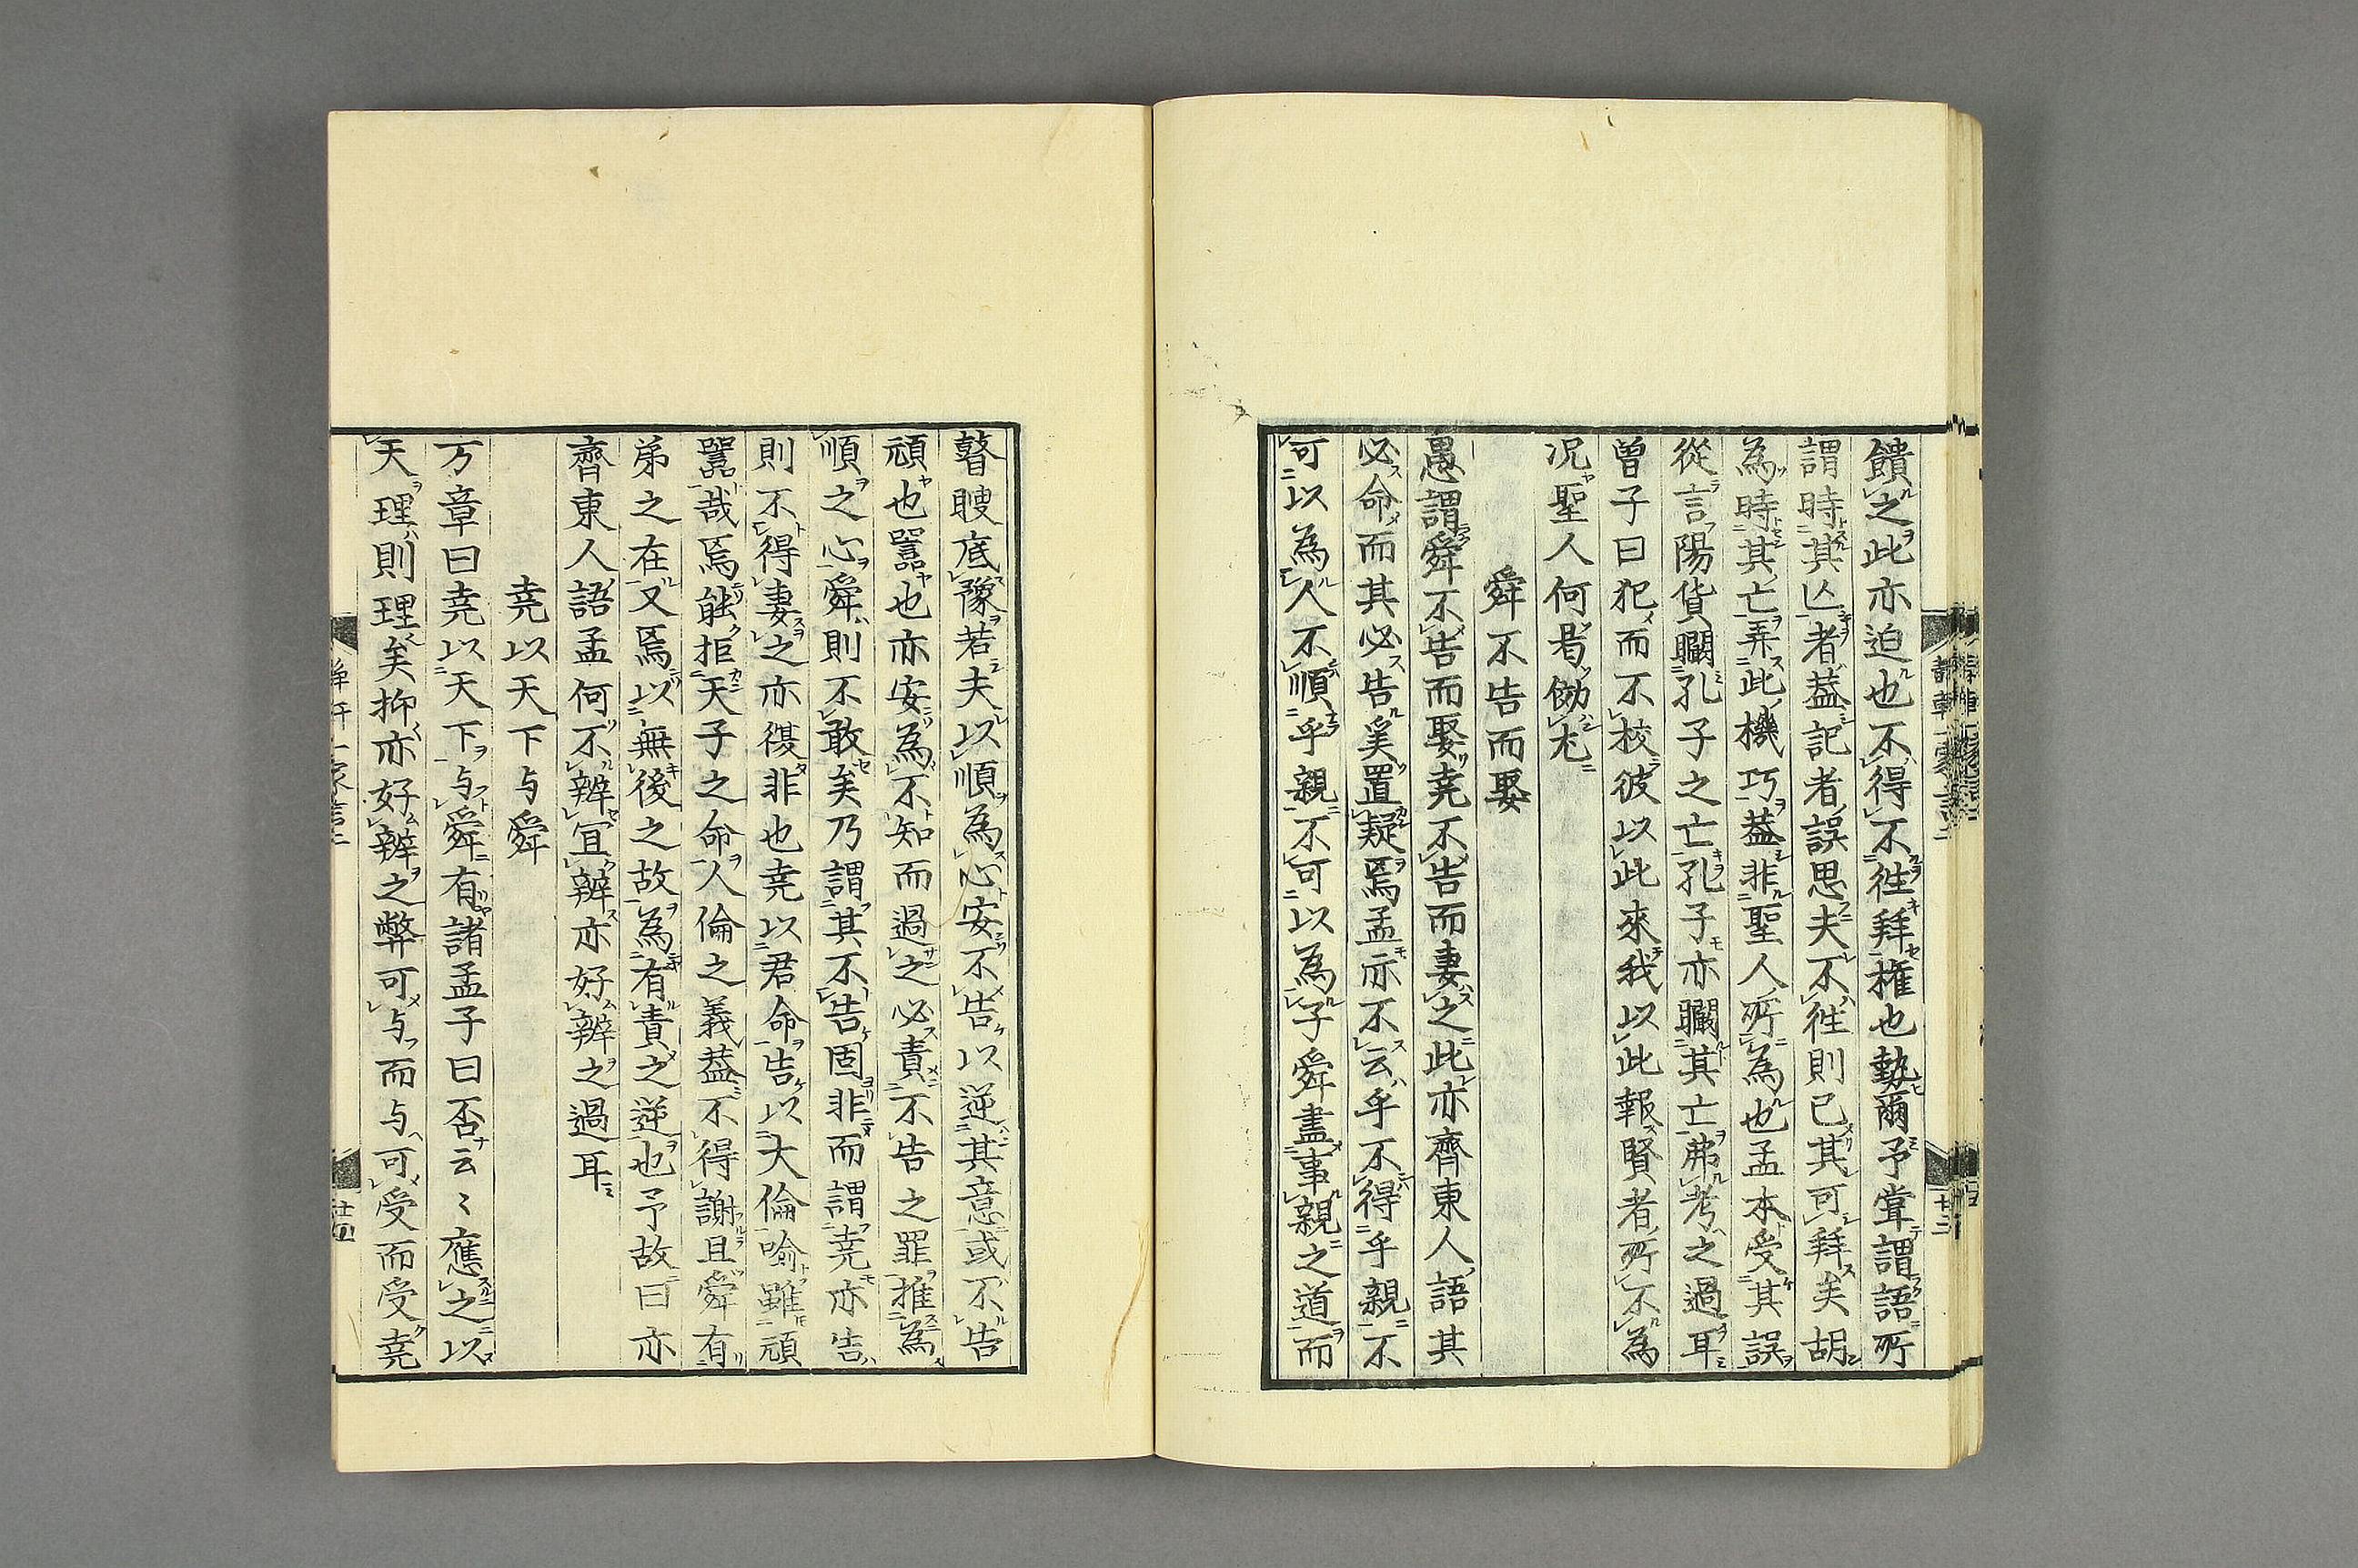 饋之此亦迫也不得不徃拜權也執爾予嘗謂語所
謂時其亾者蓋記者誤思夫不徃則已其可拜矣胡
為時其亡弄此機巧蓋非聖人所為也孟本受其誤
從言陽貨矙孔子之亡孔子亦矙其亡弗考之過耳
曽子曰犯而不校彼以此來我以此報賢者所不為
况聖人何曷効尤
舜不告而娶
愚謂舜不告而娶堯不告而妻之此亦齊東人語其
必命而其必告奚置疑焉孟亦不云乎不得乎親不
可以為人不順乎親不可以為子舜盡事親之道而
瞽瞍底豫若夫以順為心安不告以逆其意或不告
頑也嚚也亦安為不知而過之必責不告之罪推為
順之心舜則不敢矣乃謂其不告固非而謂堯亦告
則不得妻之亦復非也堯以君命告以大倫喻雖頑
嚚哉焉能拒天子之命人倫之義蓋不得謝且舜有
弟之在又焉以無後之故為有責之逆也予故曰亦
齊東人語孟何不辨冝辨亦好辨之過耳
堯以天下与舜
万章曰堯以天下与舜有諸孟子曰否云〻應之以
天理則理矣抑亦好辨之弊可与而与可受而受堯